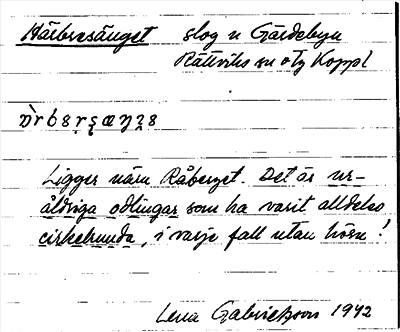 Härbresänget slog n Gärdebyn
Rättviks sn o tg Koppl
Ligger nära Råberget. Det är ur-
åldriga odlingar som ha varit alldeles
cirkelrunda, i varje fall utan hörn!
Lena Gabrielsson 1942